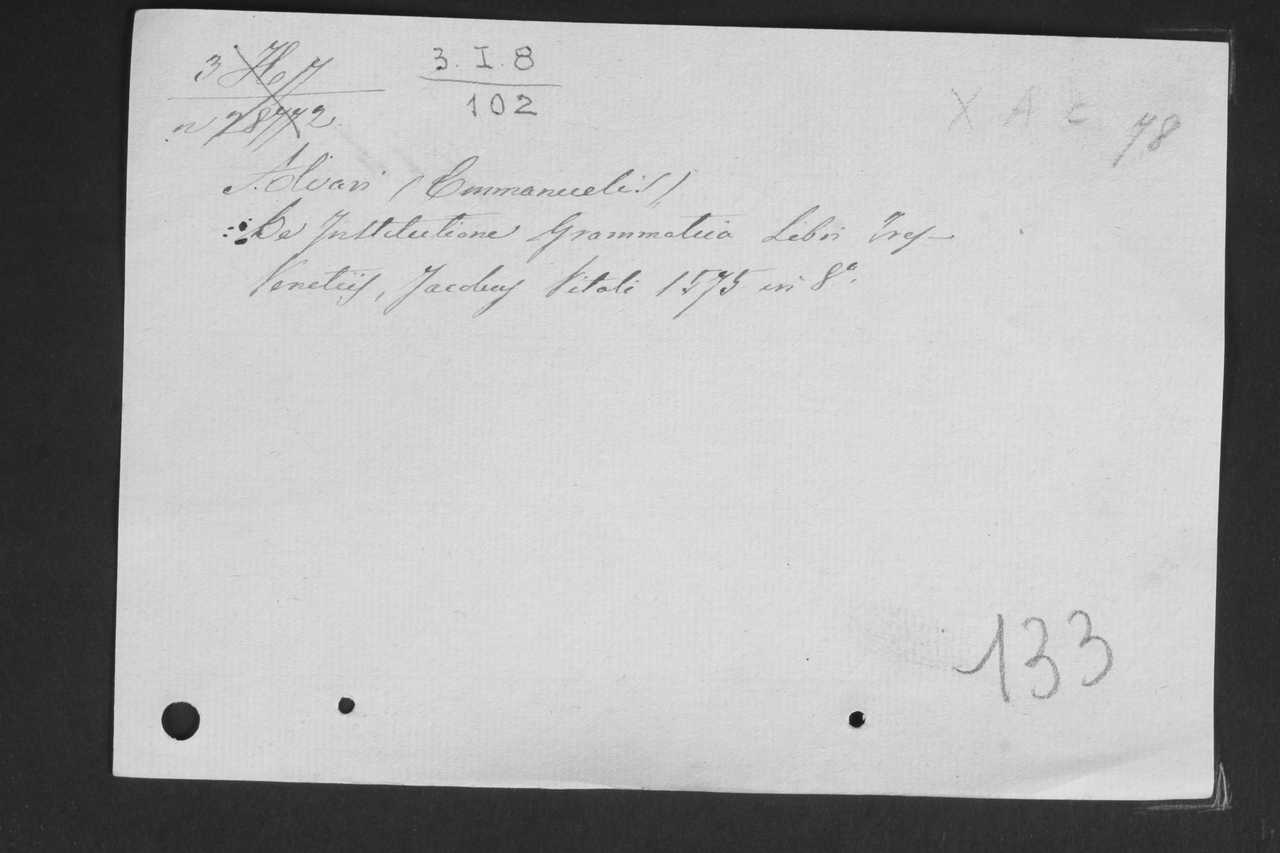 3 H 7
n 28772
3. I. 8
102
X A C 78
Alvari (Emmanuelis)
De Institutione Grammatica Libri Tres
Venetiis, Jacobus Vitali 1575 in 8°.
133